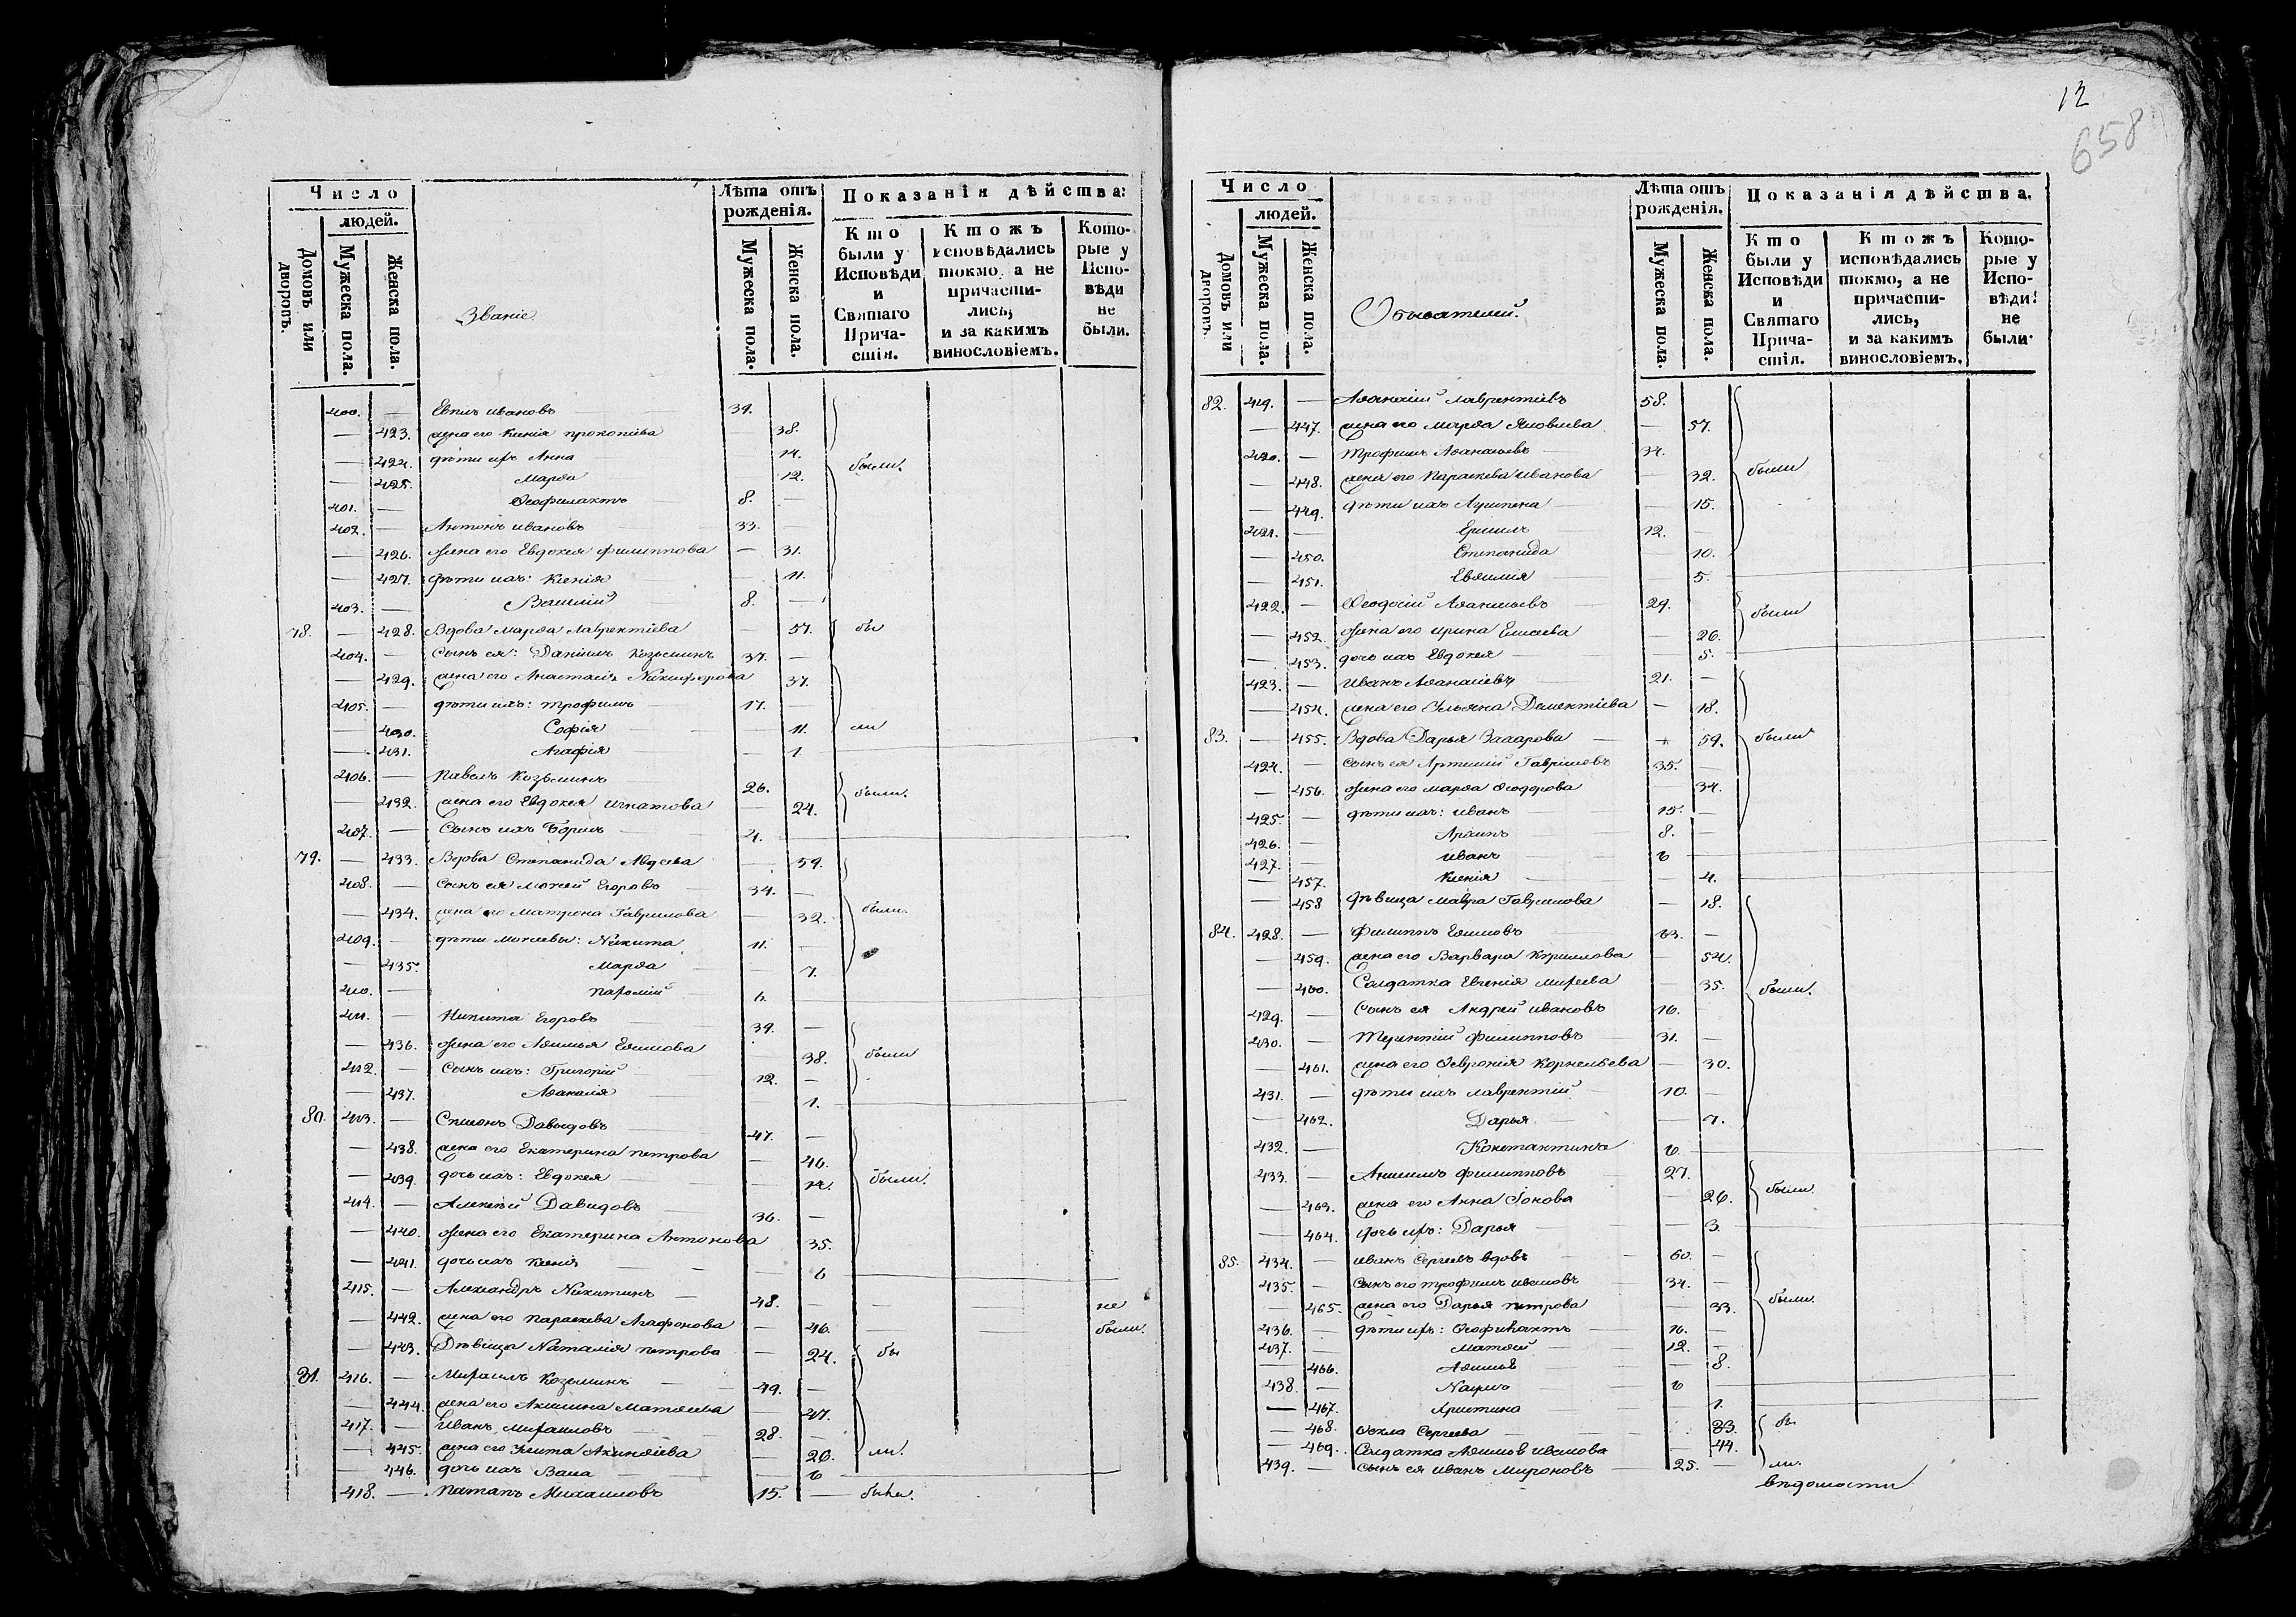 12
658
Число
людей.
Домовъ или дворовъ.
Мужеска пола.
Женска пола.
Званіе
Лѣта отъ рожденія.
Мужеска пола.
Женска пола.
Показанія дѣйства:
Кто были у Исповѣди и Святаго Прича-стія.
Ктожъ исповѣдались токмо, а не причасти-лись, и за какимъ винословіемъ.
Кото-рые у Испо-вѣди не были.
400. — Евпилъ Ивановъ 39.
— 423. жена его Ксенія Прокопіева — 38.
— 424. дѣти ихъ Анна — 14. были.
— 425. Марѳа — 12.
401. — Ѳеофилактъ 8. —
402. — Антонъ Ивановъ 33.
— 426. жена его Евдокея Филиппова — 31.
— 427. дѣти ихъ: Ксенія — 11.
403. — Василій 8. —
78. — 428. Вдова Марѳа Лаврентіева — 57. бы
404. — Сынъ ея: Даніилъ Козьминъ 37. —
— 429. жена его Анастасія Никифорова 37.
405. — дѣти ихъ: Трофимъ 17. —
— 430. Софія — 11. ли
— 431. Агафія — 1
406. — Павелъ Козьминъ 26.
— 432. жена его Евдокея Игнатова — 24. были.
407. — Сынъ ихъ Борисъ 4.
79. — 433. Вдова Степанида Авдеева — 59.
408. — Сынъ ея Мокей Егоровъ 34. —
— 434. жена его Матрена Гаврилова — 32. были.
409. — дѣти Мокеевы: Никита 11. —
— 435. Марѳа — 7.
410. — Парѳеній 6.
411. — Никита Егоровъ 39. —
— 436. жена его Авдотья Ефимова — 38. были
412. — Сынъ ихъ: Григорій 12. —
— 437. Аѳанасія 1.
80. 413. — Симеонъ Давыдовъ 47. —
— 438. жена его Екатерина Петрова — 46.
— 439. дочь ихъ: Евдокея — 14. были.
414. — Алексѣй Давидовъ 36. —
— 440. жена его Екатерина Антонова 35.
— 441. дочь ихъ Ксенія — 6
415. — Александръ Никитинъ 48. — — — не
— 442. жена его Параскева Агафонова — 46. — были.
— 443. Дѣвица Наталія Петрова — 24. бы
81. 416. — Михаилъ Козьминъ 49. —
— 444. жена его Акилина Матѳеева — 47.
417. — Иванъ Михаиловъ 28. —
— 445. жена его Улита Акинѳіева — 26. ли.
— 446. дочь ихъ Васса — 6
418. — Потапъ Михаиловъ 15. — были.
Число
людей.
Домовъ или дворовъ.
Мужеска пола.
Женска пола.
Обывателей.
Лѣта отъ рожденія.
Мужеска пола.
Женска пола.
Показанія дѣйства.
Кто были у Исповѣди и Святаго Прича-стія.
Ктожъ исповѣдались токмо, а не причасти-лись, и за какимъ винословіемъ.
Кото-рые у Испо-вѣди не были
82. 419. — Аѳанасій Лаврентіевъ 58.
— 447. жена его Марѳа Яковлева — 57.
420. — Трофимъ Аѳанасьевъ 34.
— 448. жена его Параскева Иванова — 32. были
— 449. дѣти ихъ Агрипена — 15.
421. — Ермилъ 12. —
— 450. Степанида — 10.
— 451. Евѳимія — 5.
422. — Ѳеодосій Аѳанасьевъ 29. были
— 452. жена его Ирина Елисеева — 26.
— 453. дочь ихъ Евдокея — 5.
423. — Иванъ Аѳанасіевъ 21. —
— 454. жена его Ульяна Дементіева — 18.
83. — 455. Вдова Дарья Захарова — 59. были
424. — Сынъ ея Артемій Гавриловъ 35. —
— 456. жена его Марѳа Ѳеодорова — 34.
425. — дѣти ихъ: Иванъ 15. —
426. — Архипъ 8. —
427. — Иванъ 6 —
— 457. Ксенія — 4.
— 458 дѣвица Мавра Гаврилова — 18.
84. 428. — Филиппъ Ефимовъ 63. —
— 459. жена его Варвара Кириллова — 54.
— 460. Солдатка Евгенія Михеева — 35. были.
429. — Сынъ ея Андрей Ивановъ 16. —
430. — Терентій Филипповъ 31. —
— 461. жена его Ѳевронія Корнельева — 30.
431. — дѣти ихъ Лаврентій 10. —
— 462. Дарья — 7.
432. — Константинъ 6. —
433. — Анисимъ Филипповъ 27.
— 463. жена его Анна Іонова — 26. были.
— 464. дочь ихъ: Дарья — 3.
85. 434. — Иванъ Сергеевъ вдовъ 60. —
435. — Сынъ его Трофимъ Ивановъ 34. —
— 465. жена его Дарья Петрова — 33. были.
436. — дѣти ихъ: Ѳеофилактъ 16. —
437. — Матѳей 12. —
— 466. Авдотья — 8.
438. — Наумъ 6 —
— 467. Христина 1.
— 468. Ѳекла Сергеева 33. бы
— 469. Солдатка Иванова 44.
439. — Сынъ ея Иванъ Мироновъ 25. — ли.
вѣдомости